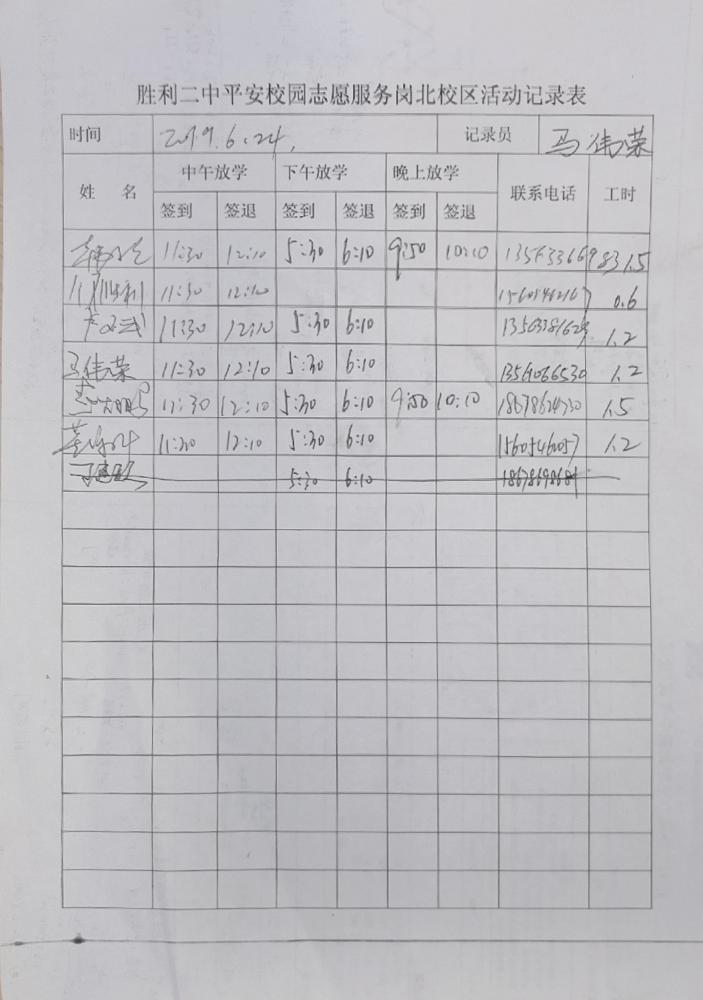 胜利二中平安校园志愿服务岗北校区活动记录表
时间 2019.6.24. 记录员 马伟荣
姓名 中午放学 下午放学 晚上放学 联系电话 工时
签到 签退 签到 签退 签到 签退
11:30 12:10 5:30 6:10 9:50 10:10 1.5
11:30 12:10 0.6
11:30 12:10 5:30 6:10 1.2
马伟荣 11:30 12:10 5:30 6:10 13561066530 1.2
11:30 12:10 5:30 6:10 9:50 10:10 1.5
11:30 12:10 5:30 6:10 15605460057 1.2
5:30 6:10